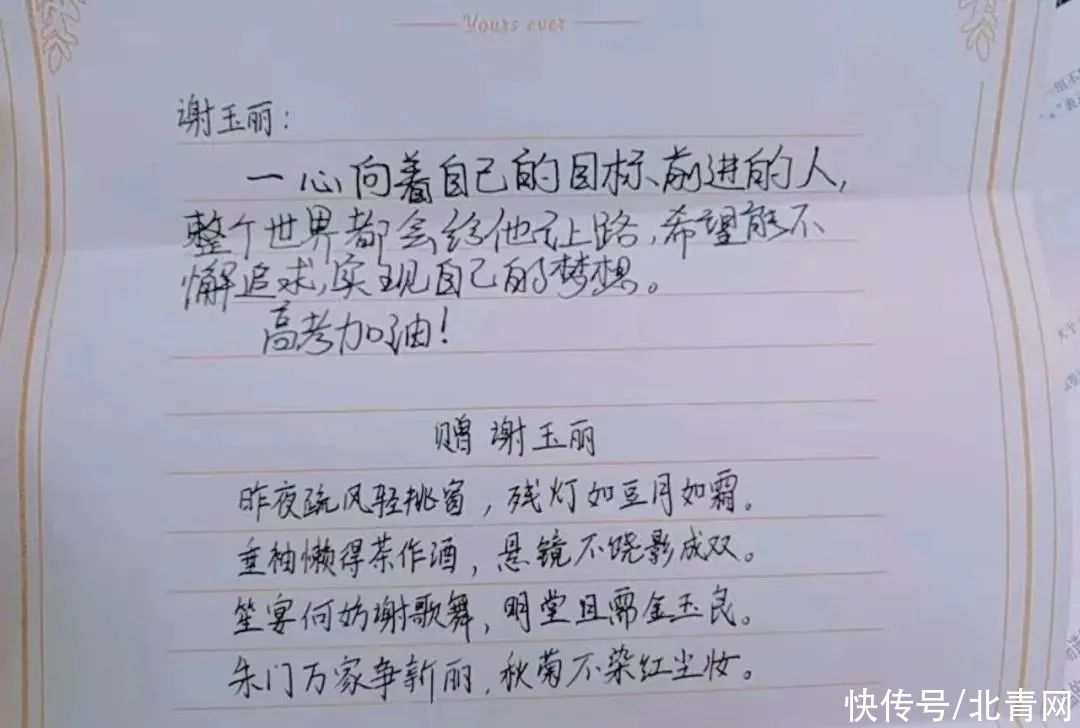 Yours ever
谢玉丽：
一心向着自己的目标前进的人，
整个世界都会给他让路，希望能不
懈追求，实现自己的梦想。
高考加油！
赠谢玉丽
昨夜疏风轻挑窗，残灯如豆月如霜。
垂袖懒得茶作酒，悬镜不饶影成双。
笙宴何妨谢歌舞，明堂且需金玉良。
朱门万家争新丽，秋菊不染红尘妆。
快传号/北青网